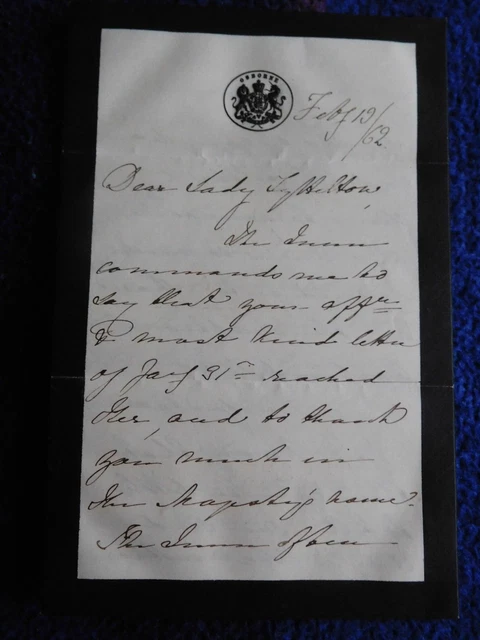 OSBORNE
Feby 19/62
Dear Lady Lyttelton,
The Queen
commands me to
say that your affte
& most kind letter
of Jany 31st reached
Her, and to thank
you much in
Her Majesty's name.
The Queen often